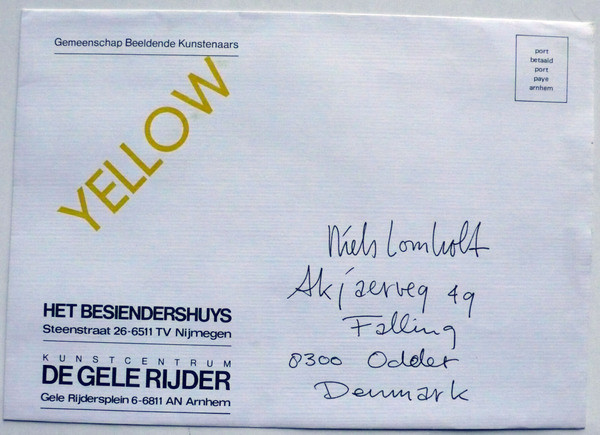 Gemeenschap Beeldende Kunstenaars
port
betaald
port
paye
arnhem
YELLOW
Niels Lomholt
Akjaerveg 49
Falling
8300 Odder
Denmark
HET BESIENDERSHUYS
Steenstraat 26-6511 TV Nijmegen
KUNSTCENTRUM
DE GELE RIJDER
Gele Rijdersplein 6-6811 AN Arnhem